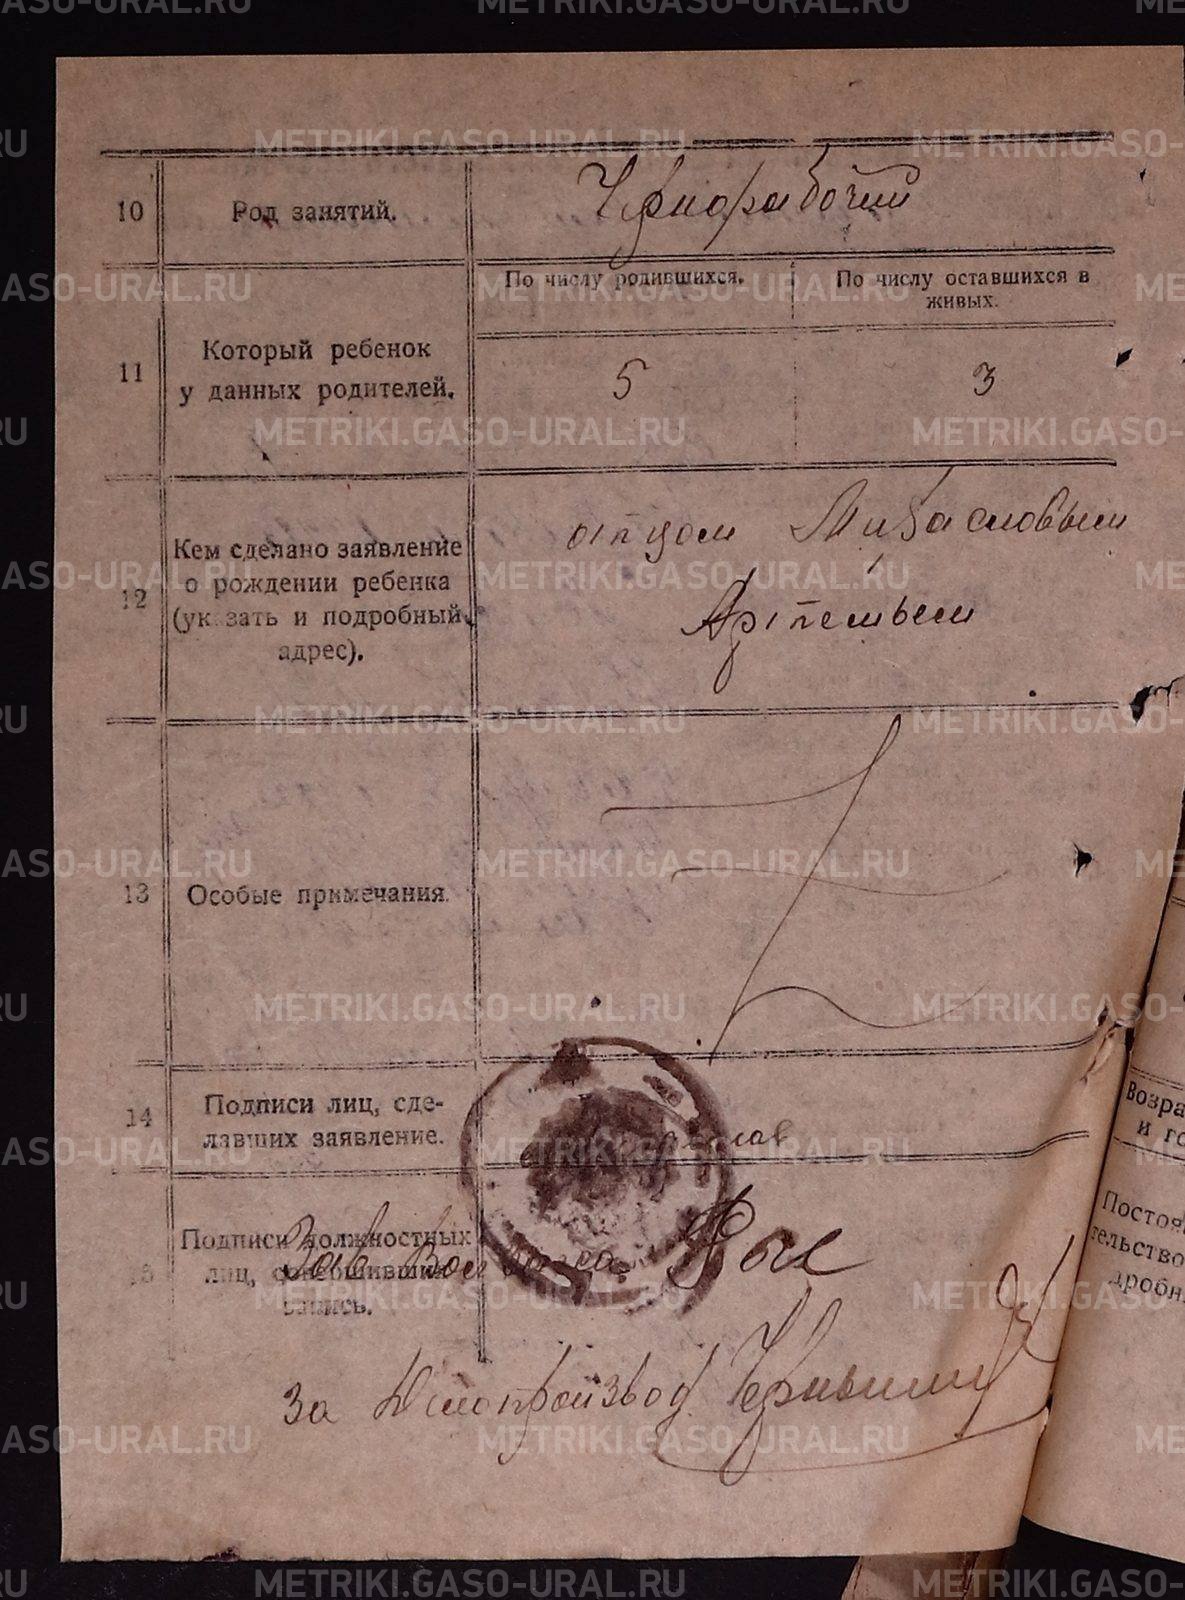 10 Род занятий. Чернорабочий
По числу родившихся. По числу оставшихся в
живых.
11 Который ребенок
у данных родителей. 5 3
12 Кем сделано заявление
о рождении ребенка
(указать и подробный
адрес).
отцом
Артемьем
13 Особые примечания.
14 Подписи лиц, сде-
лавших заявление.
15 Подписи должностных
лиц, совершивших
запись.
Зав.
за Делопроизвод.
Возра
и го
Постоя
тельство
дробн
METRIKI.GASO-URAL.RU